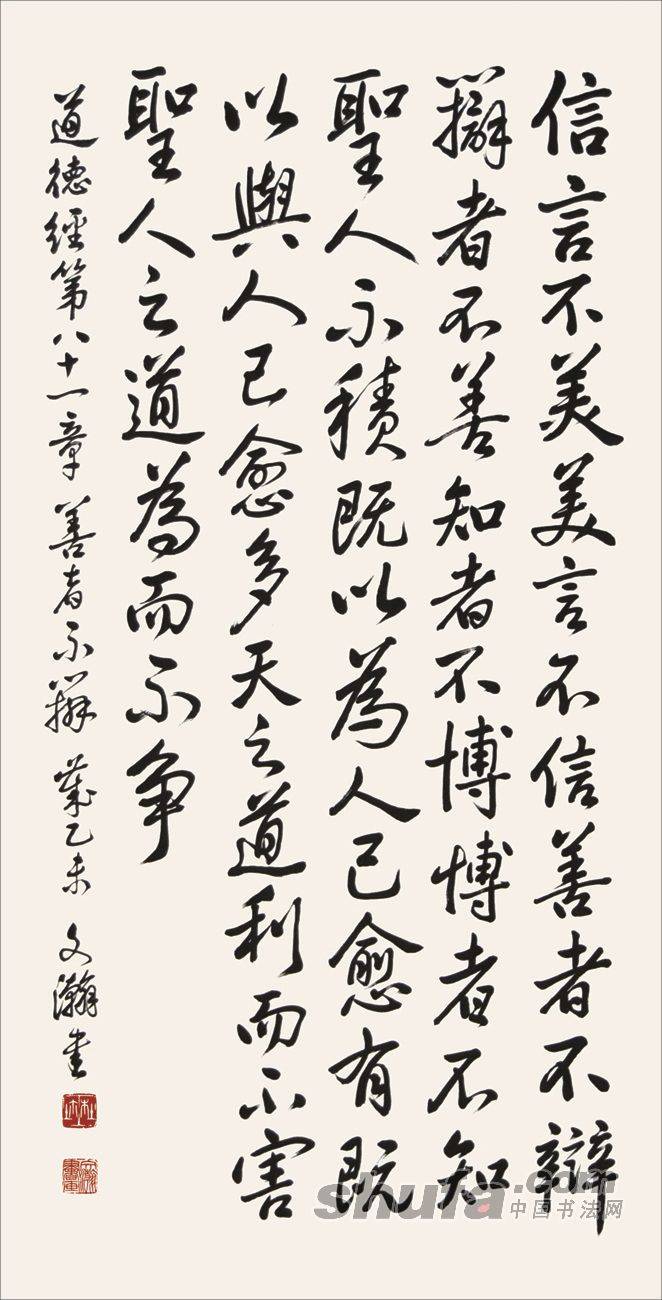 信言不美美言不信善者不辯
辯者不善知者不博博者不知
聖人不積既以為人己愈有既
以與人己愈多天之道利而不害
聖人之道為而不争
道德經第八十一章善者不辯 歲乙未 文瀚書
shufa.com
中国书法网